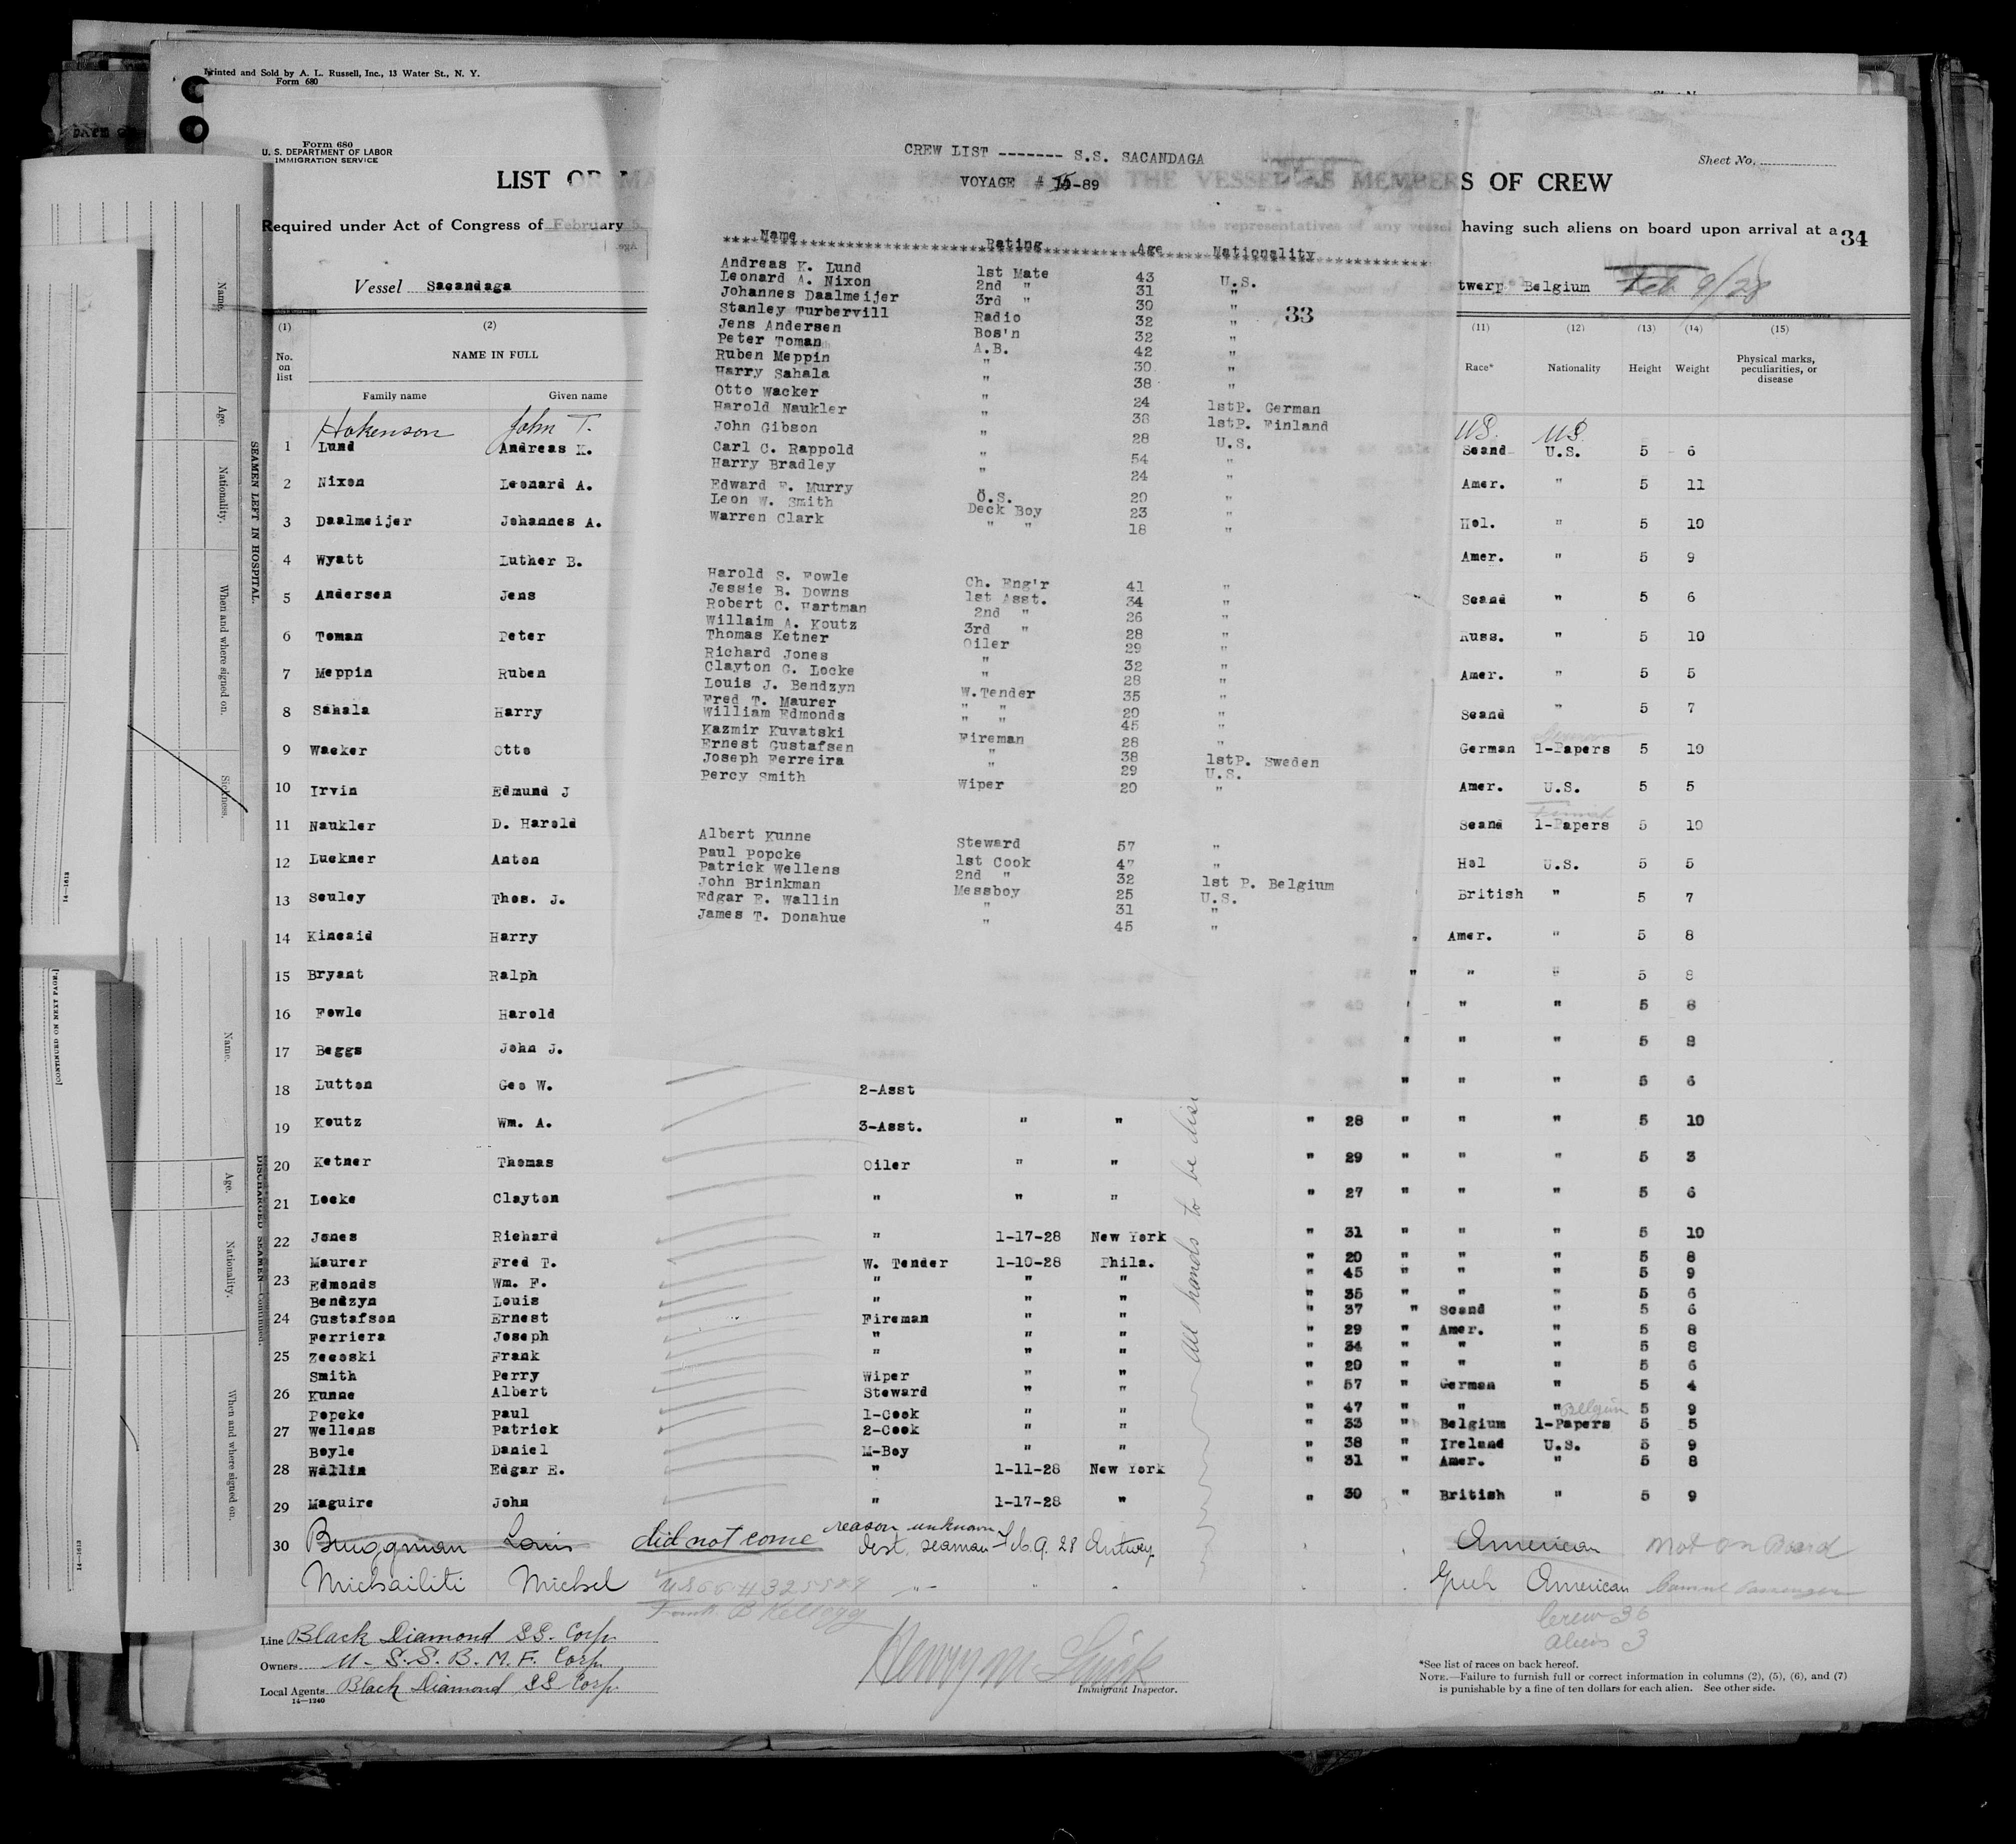 Printed and Sold by A. L. Russell, Inc., 13 Water St., N. Y.
Form 680
Form 680
U. S. DEPARTMENT OF LABOR
IMMIGRATION SERVICE
Sheet No.
LIST OR MA
S OF CREW
Required under Act of Congress of February 5
having such aliens on board upon arrival at a
34
Vessel Sacandaga
twerp Belgium Feb 9/28
CREW LIST ------- S.S. SACANDAGA
VOYAGE # 15-89
Name Rating Age Nationality
33
Andreas K. Lund 1st Mate 43 U.S.
Leonard A. Nixon 2nd " 31 "
Johannes Daalmeijer 3rd " 30 "
Stanley Turbervill Radio 32 "
Jens Andersen Bos'n 32 "
Peter Toman A.B. 42 "
Ruben Meppin " 30 "
Harry Sahala " 38 "
Otto Wacker " 24 1stP. German
Harold Naukler " 38 1stP. Finland
John Gibson " 28 U.S.
Carl C. Rappold " 54 "
Harry Bradley " 24 "
Edward F. Murry O.S. 20 "
Leon W. Smith Deck Boy 23 "
Warren Clark " " 18 "
Harold S. Fowle Ch. Eng'r 41 "
Jessie B. Downs 1st Asst. 34 "
Robert C. Hartman 2nd " 26 "
Willaim A. Koutz 3rd " 28 "
Thomas Ketner Oiler 29 "
Richard Jones " 32 "
Clayton C. Locke " 28 "
Louis J. Bendzyn W.Tender 35 "
Fred T. Maurer " " 20 "
William Edmonds " " 45 "
Kazmir Kuvatski Fireman 28 "
Ernest Gustafsen " 38 1stP. Sweden
Joseph Ferreira " 29 U.S.
Percy Smith Wiper 20 "
Albert Kunne Steward 57 "
Paul Popcke 1st Cook 47 "
Patrick Wellens 2nd " 32 1st P. Belgium
John Brinkman Messboy 25 U.S.
Edgar E. Wallin " 31 "
James T. Donahue " 45 "
(1) (2) (11) (12) (13) (14) (15)
No. on list
NAME IN FULL
Family name Given name
Race* Nationality Height Weight Physical marks, peculiarities, or disease
Hokenson John T. US. US.
1 Lund Andreas K. Scand U.S. 5 6
2 Nixon Leonard A. Amer. " 5 11
3 Daalmeijer Johannes A. Hol. " 5 10
4 Wyatt Luther B. Amer. " 5 9
5 Andersen Jens Scand " 5 6
6 Toman Peter Russ. " 5 10
7 Meppin Ruben Amer. " 5 5
8 Sahala Harry Scand " 5 7
9 Wacker Otto German 1-Papers 5 10
10 Irvin Edmund J Amer. U.S. 5 5
11 Naukler D. Harold Scand 1-Papers 5 10
12 Luckner Anton Hol U.S. 5 5
13 Souley Thos. J. British " 5 7
14 Kincaid Harry " Amer. " 5 8
15 Bryant Ralph " " " 5 8
16 Fowle Harold " " 5 8
17 Beggs John J. " " " 5 8
18 Lutton Geo W. 2-Asst " " " 5 6
19 Koutz Wm. A. 3-Asst. " " " 28 " " " 5 10
20 Ketner Thomas Oiler " " " 29 " " " 5 3
21 Locke Clayton " " " " 27 " " " 5 6
22 Jones Richard " 1-17-28 New York " 31 " " " 5 10
Maurer Fred T. W. Tender 1-10-28 Phila. " 20 " " " 5 8
23 Edmonds Wm. F. " " " " 45 " " " 5 9
Bendzyn Louis " " " " 35 " " " 5 6
24 Gustafson Ernest Fireman " " " 37 " Scand " 5 6
Ferriera Joseph " " " " 29 " Amer. " 5 8
25 Zecoski Frank " " " " 34 " " " 5 8
Smith Perry Wiper " " " 20 " " " 5 6
26 Kunne Albert Steward " " " 57 " German " 5 4
Popcke Paul 1-Cook " " " 47 " " " 5 9
27 Wellens Patrick 2-Cook " " " 33 " Belgium 1-Papers Belgium 5 5
Boyle Daniel M-Boy " " " 38 " Ireland U.S. 5 9
28 Wallin Edgar E. " 1-11-28 New York " 31 " Amer. " 5 8
29 Maguire John " 1-17-28 " " 30 " British " 5 9
All hands to be dis
30 Bruggman Louis did not come reason unknown Dest. seaman Feb. 9. 28 Antwerp American Not on Board
Michailiti Michel American
Frank B Kellogg
Crew 36
Aliens 3
Line Black Diamond SS. Corp.
Owners U. S. S. B. M. F. Corp.
Local Agents Black Diamond SS Corp.
14-1240
Immigrant Inspector.
*See list of races on back hereof.
NOTE.—Failure to furnish full or correct information in columns (2), (5), (6), and (7)
is punishable by a fine of ten dollars for each alien. See other side.
SEAMEN LEFT IN HOSPITAL.
Name. Age. Nationality. When and where signed on. Sickness.
DISCHARGED SEAMEN—Continued.
Name. Age. Nationality. When and where signed on.
[CONTINUED ON NEXT PAGE.]
14-1613
14-1613